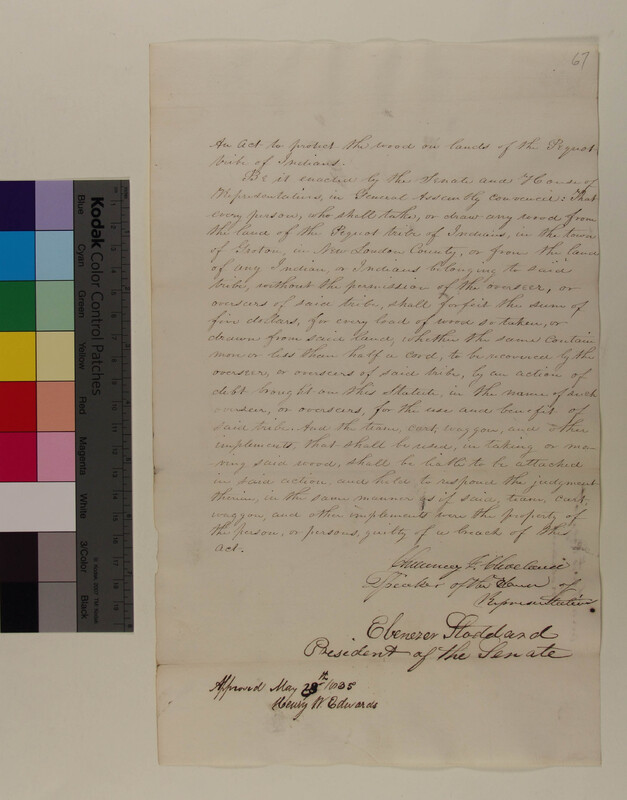 67
An Act to protect the wood on lands of the Pequot
tribe of Indians.
Be it enacted by the Senate and House of
Representatives, in General Assembly convened: That
every person, who shall take, or draw any wood from
the land of the Pequot tribe of Indians, in the town
of Groton, in New London County, or from the land
of any Indian, or Indians belonging to said
tribe, without the permission of the overseer, or
overseers of said tribe, shall forfeit the sum of
five dollars, for every load of wood so taken, or
drawn from said land, whether the same contain
more or less than half a cord, to be recovered by the
overseer, or overseers of said tribe, by an action of
debt brought on this Statute in the name of such
overseer, or overseers, for the use and benefit of
said tribe. And the team, cart, waggon, and other
implements, that shall be used, in taking or mo-
-ving said wood, shall be liable to be attached
in said action, and held to respond the judgment
therein, in the same manner as if said, team, cart,
waggon, and other implements were the property of
the person, or persons, guilty of a breach of this
act.
Chauncey F. Cleveland
Speaker of the House of
Representatives
Ebenezer Stoddard
President of the Senate
Approved May 28th 1835
Henry W Edwards
Kodak Color Control Patches
Blue Cyan Green Yellow Red Magenta White 3/Color Black